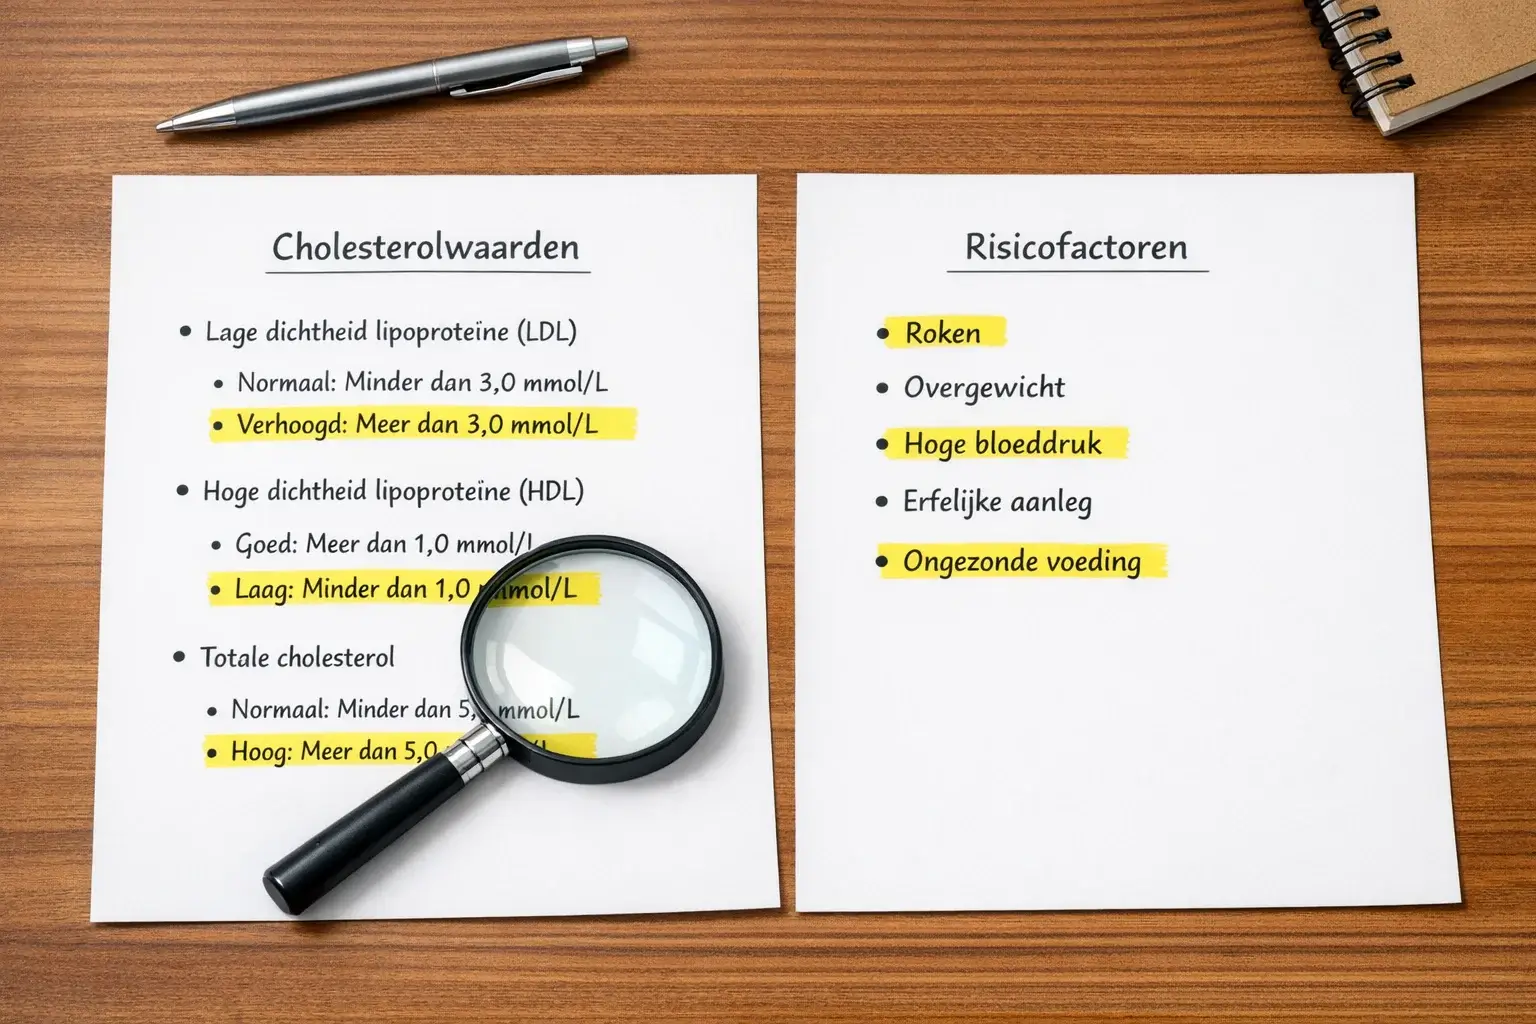 Cholesterolwaarden
• Lage dichtheid lipoproteïne (LDL)
• Normaal: Minder dan 3,0 mmol/L
• Verhoogd: Meer dan 3,0 mmol/L
• Hoge dichtheid lipoproteïne (HDL)
• Goed: Meer dan 1,0 mmol/L
• Laag: Minder dan 1,0 mmol/L
• Totale cholesterol
• Normaal: Minder dan 5, mmol/L
• Hoog: Meer dan 5,0
Risicofactoren
• Roken
• Overgewicht
• Hoge bloeddruk
• Erfelijke aanleg
• Ongezonde voeding